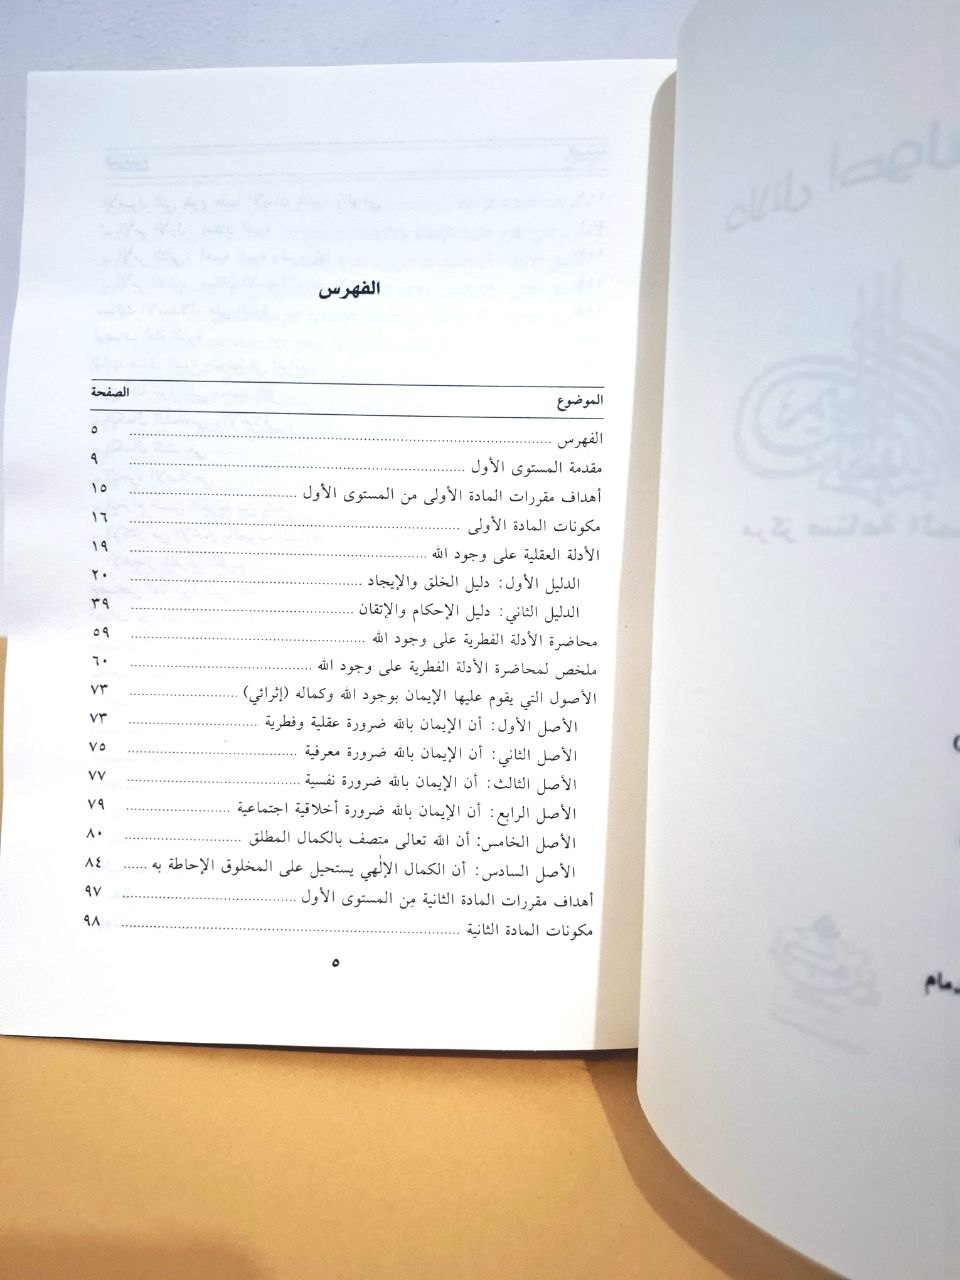 الفهرس
الموضوع الصفحة
الفهرس ........ ٥
مقدمة المستوى الأول ........ ٩
أهداف مقررات المادة الأولى من المستوى الأول ........ ١٥
مكونات المادة الأولى ........ ١٦
الأدلة العقلية على وجود الله ........ ١٩
الدليل الأول: دليل الخلق والإيجاد ........ ٢٠
الدليل الثاني: دليل الإحكام والإتقان ........ ٣٩
محاضرة الأدلة الفطرية على وجود الله ........ ٥٩
ملخص لمحاضرة الأدلة الفطرية على وجود الله ........ ٦٠
الأصول التي يقوم عليها الإيمان بوجود الله وكماله (إثرائي) ........ ٧٣
الأصل الأول: أن الإيمان بالله ضرورة عقلية وفطرية ........ ٧٣
الأصل الثاني: أن الإيمان بالله ضرورة معرفية ........ ٧٥
الأصل الثالث: أن الإيمان بالله ضرورة نفسية ........ ٧٧
الأصل الرابع: أن الإيمان بالله ضرورة أخلاقية اجتماعية ........ ٧٩
الأصل الخامس: أن الله تعالى متصف بالكمال المطلق ........ ٨٠
الأصل السادس: أن الكمال الإلٰهي يستحيل على المخلوق الإحاطة به ...... ٨٤
أهداف مقررات المادة الثانية مِن المستوى الأول ........ ٩٧
مكونات المادة الثانية ........ ٩٨
٥